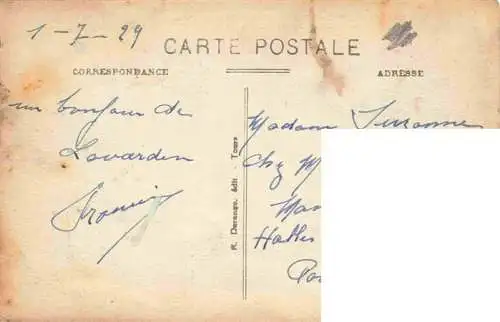 1-7-29
CARTE POSTALE
CORRESPONDANCE
ADRESSE
un bonjour de
Lavardin
R. Dorange, édit - Tours
Madame Suzanne
Chez M
Halles